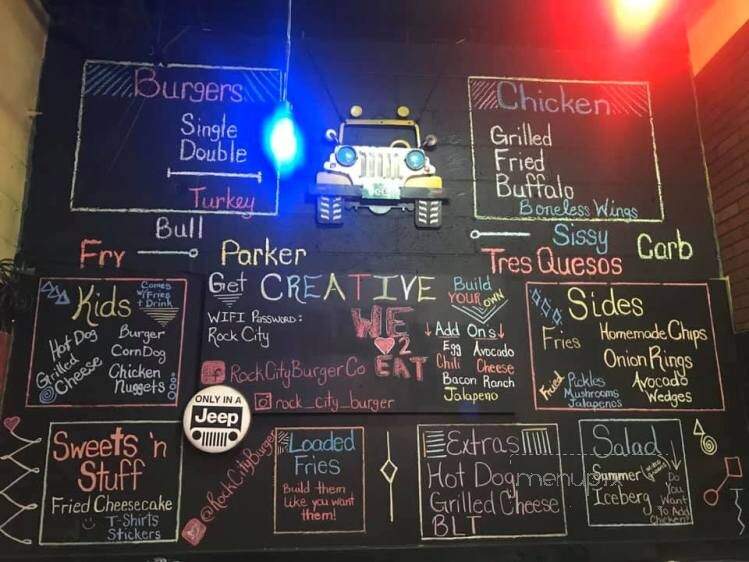 Burgers
Single
Double
Turkey
Chicken
Grilled
Fried
Buffalo
Boneless Wings
Bull
Fry
Parker
Sissy
Tres Quesos
Carb
Kids
Comes
w/Fries
+ Drink
Hot Dog
Grilled
Cheese
Burger
Corn Dog
Chicken
Nuggets
Get CREATIVE
WIFI Password:
Rock City
WE
2
EAT
Build
YOUR OWN
Add On's
Egg Avocado
Chili Cheese
Bacon Ranch
Jalapeno
RockCityBurgerCo
rock_city_burger
Sides
Fries
Homemade Chips
Onion Rings
Fried
Pickles
Mushrooms
Jalapenos
Avocado
Wedges
ONLY IN A
Jeep
Sweets 'n
Stuff
Fried Cheesecake
T-Shirts
Stickers
@RockCityBurger
Loaded
Fries
Build them
Like you want
them!
Extras
Hot Dog
Grilled Cheese
BLT
Salad
Summer
Iceberg
Do
You
Want
To Add
Chicken?
menupix